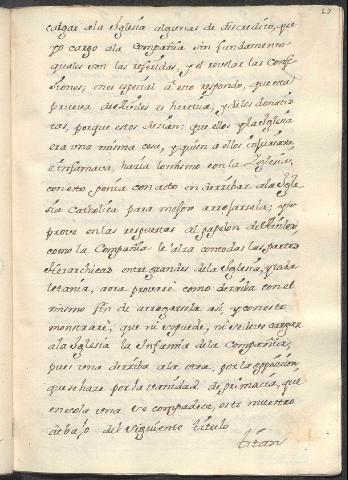 cargar ala Iglesia algunas de discredito, que
yo cargo ala Compañia sin fundamento
quales son las referidas, y el revelar las Confe
siones; en especial à esto respondo, que esta
prueva de es heretica, y delos donatis
tas, porque estos decian: que ellos y la Iglesia
era una misma cosa, y quien a ellos injuriava,
è infamava, hacia lo mismo con la Iglesia,
con esto ponia conacto in derribar ala Igle
sia Catholica para mejor arrogarsela; yo
prove en las respuestas al papelon del
como la Compañia se alza con todas las partes
Hierarchicas entre grandes dela Iglesia, y toda
letania, aora provarè como derriba con el
mismo fin de arrogarsela asi, y con esto
monstrarè, que ni se puede, ni se deve cargar
ala Iglesia la Infamia dela Compañia,
pues una derriba ala otra, por la opposicion
que se hace por la vanidad de primacia, que
en sola una se compadece, esto muestro
debajo del siguiente titulo